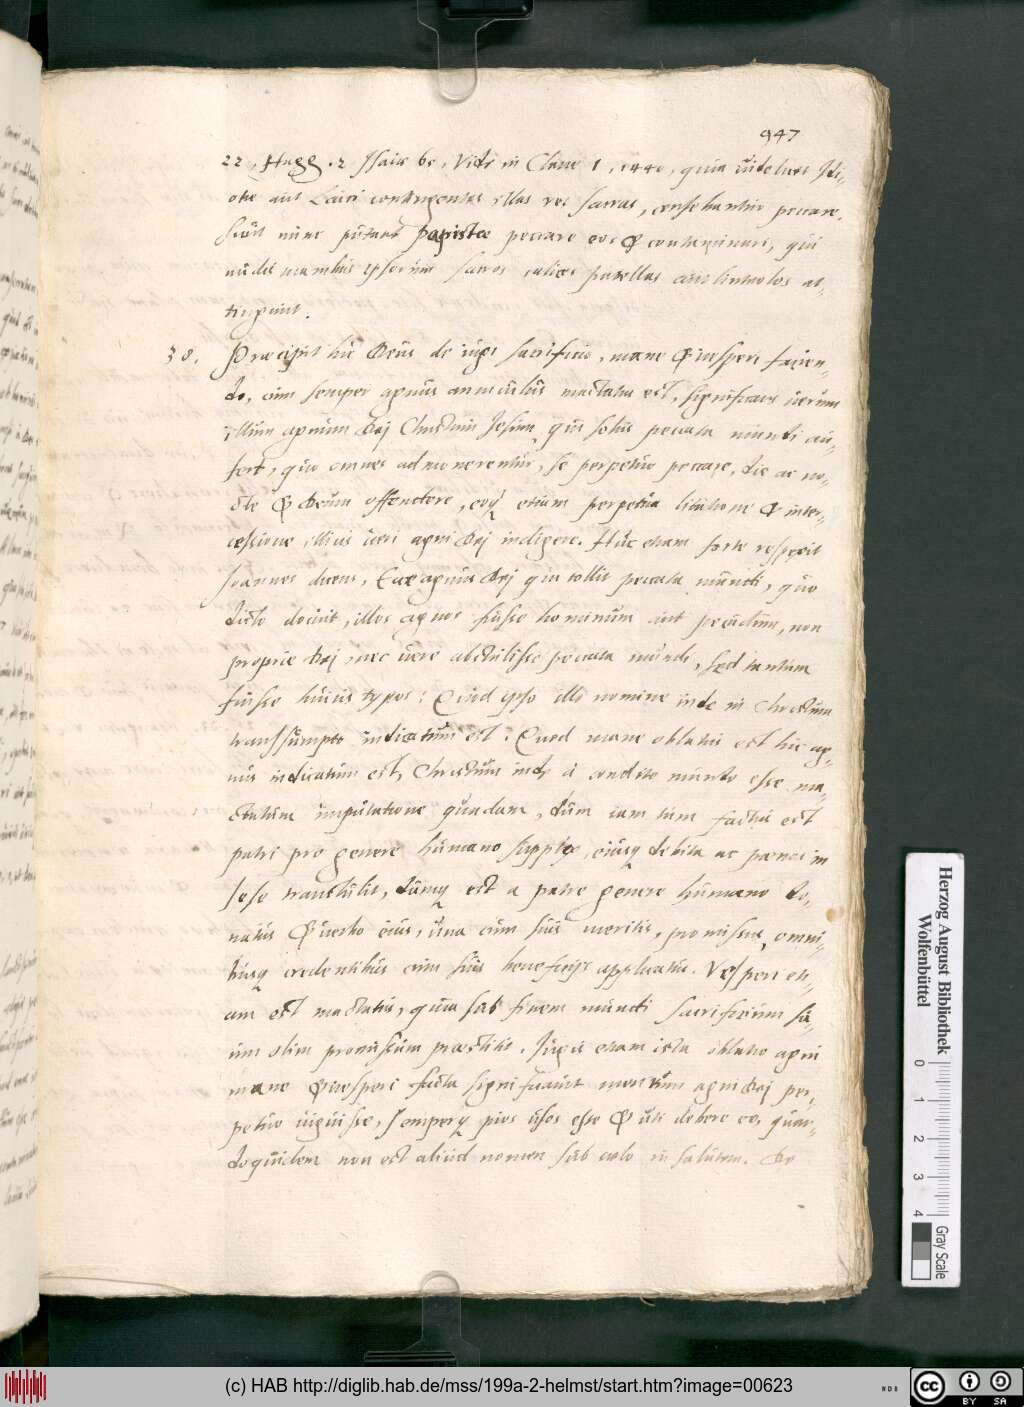 947
22, Hagg. 2 Jsaiæ 65, Vide in Clave 1, 1440, quia uidelicet Idi-
otæ aut Laici contingentes illas res sacras, censebantur peccare.
sicut nunc putant Papistæ peccare eos & contaminari, qui
nudis manibus ipsorum sacros calices patellas aut linteolos at-
tingunt.
38. Præcipit hic Deus de iugi sacrificio, mane & uesperi facien-
do, cum semper agnus anniculus mactatus est, significans uerum
illum agnum Dej Christum Jesum, qui solus peccata mundi au-
fert, quo omnes admonerentur, se perpetuo peccare, die ac no-
cte & Deum offendere, eoq etiam perpetua litatione & inter-
cessione illius ueri agni Dej indigere. Huc etiam forte respexit
Joannes dicens, Ecce agnus Dej qui tollit peccata mundi, quo
dicto docuit, illos agnos fuisse hominum aut pecudum, non
proprie Dej nec uere abstulisse peccata mundi, sed tantum
fuisse huius typos: Quod ipso illo nomine inde in Christum
transsumpto indicatum est: Quod mane oblatus est hic ag-
nus indicatum est, Christum inde a condito mundo esse ma-
ctatum imputatione quadam, dum iam tum factus est
patri pro genere humano supplex, eiusq debita ac poenas in
sese transtulit, dumq est a patre genere humano do-
natus & uerbo eius, una cum suis meritis, promissus, omni-
busq credentibus cum suis beneficijs applicatus. Vesperi eti-
am est mactatus, quia sub finem mundi sacrificium su-
um olim promissum præstitit. Jugis etiam ista oblatio agni
mane & uesperi facta significauit meritum agni Dej per-
petuo uiguisse, semperq pios usos esse & uti debere eo, quan-
doquidem non est aliud nomen sub cœlo in salutem. De
Herzog August Bibliothek
Wolfenbüttel
0 1 2 3 4
Gray Scale
(c) HAB http://diglib.hab.de/mss/199a-2-helmst/start.htm?image=00623
cc BY SA